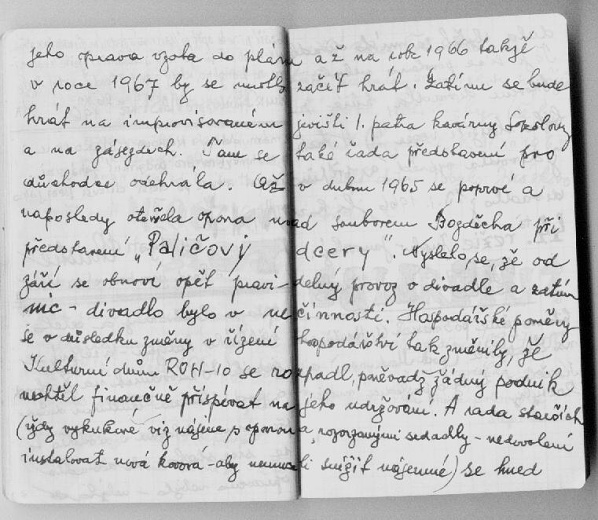 jeho oprava vzata do plánu až na rok 1966 takžě
v roce 1967 by se mohlo začít hrát. Zatímu se bude
hrát na improvisovaném jevišti 1. patra kavárny Sokolovny
a na zájezdech. Tam se také řada představení pro
důchodce odehrála. Až v dubnu 1965 se poprvé a
naposledy otevřela opona nad souborem Bozděcha při
představení „Paličovy dcery“. Myslelo se, žě od
září se obnoví opět pravidelný provoz o divadle a zatím
nic - divadlo bylo v nečinnosti. Hospodářské poměry
se v důsledku změny v řízení hospodářství tak změnily, žě
Kulturní dům ROH-10 se rozpadl, poněvadž žádný podnik
nechtěl finančně přispívat na jeho udržování. A rada starších
(vždy vykukové viz nájem, s oponou a rozorzanými sedadly - nedovolení
instalovat nová kovová - aby nemuseli snížit nájemné) se hned